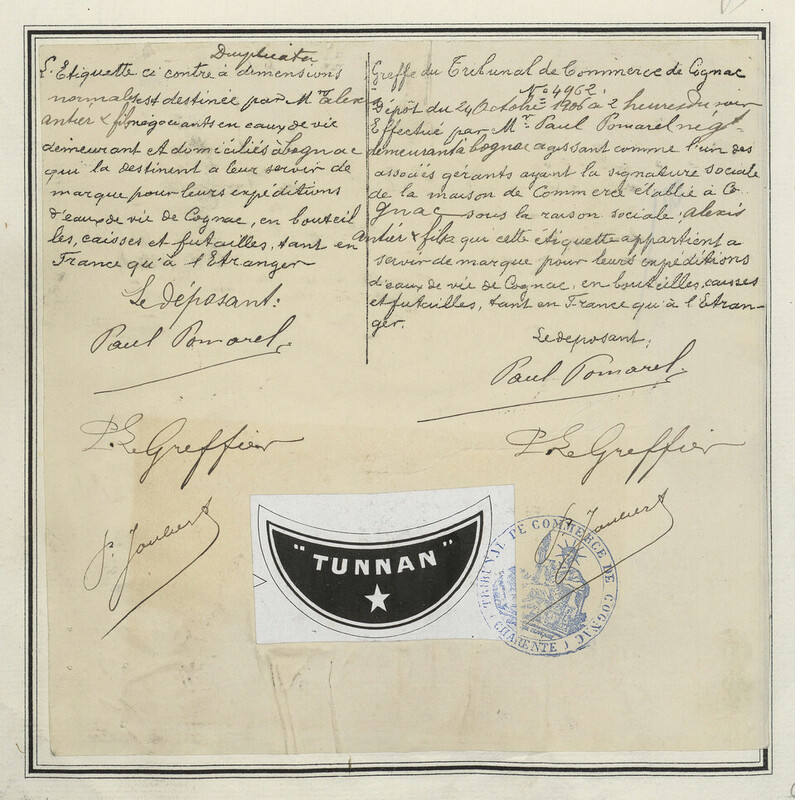 Duplicata
L'Etiquette ci contre à dimensions
normales est destinée par Mr Alexis
Antier & fils négociants en eaux de vie
demeurant et domiciliés à Cognac
qui la destinent a leur servir de
marque pour leurs expéditions
d'eaux de vie de Cognac, en bouteil
les, caisses et futailles, tant en
France qu'à l'Etranger
Le déposant:
Paul Pomarel
P. Le Greffier
P. Joubert
Greffe du Tribunal de Commerce de Cognac
No 4962.
Dépôt du 24 Octobre 1906 à 2 heures du soir
Effectué par Mr. Paul Pomarel négt
demeurant à Cognac agissant comme l'un des
associés gérants ayant la signature sociale
de la maison de Commerce établie à Co
gnac sous la raison sociale: Alexis
Antier & fils qui cette étiquette appartient a
servir de marque pour leurs expéditions
d'eaux de vie de Cognac, en bouteilles, caisses
et futailles, tant en France qu'à l'Etran-
ger.
Le déposant:
Paul Pomarel
P. Le Greffier
P. Joubert
"TUNNAN"
TRIBUNAL DE COMMERCE DE COGNAC
(CHARENTE)